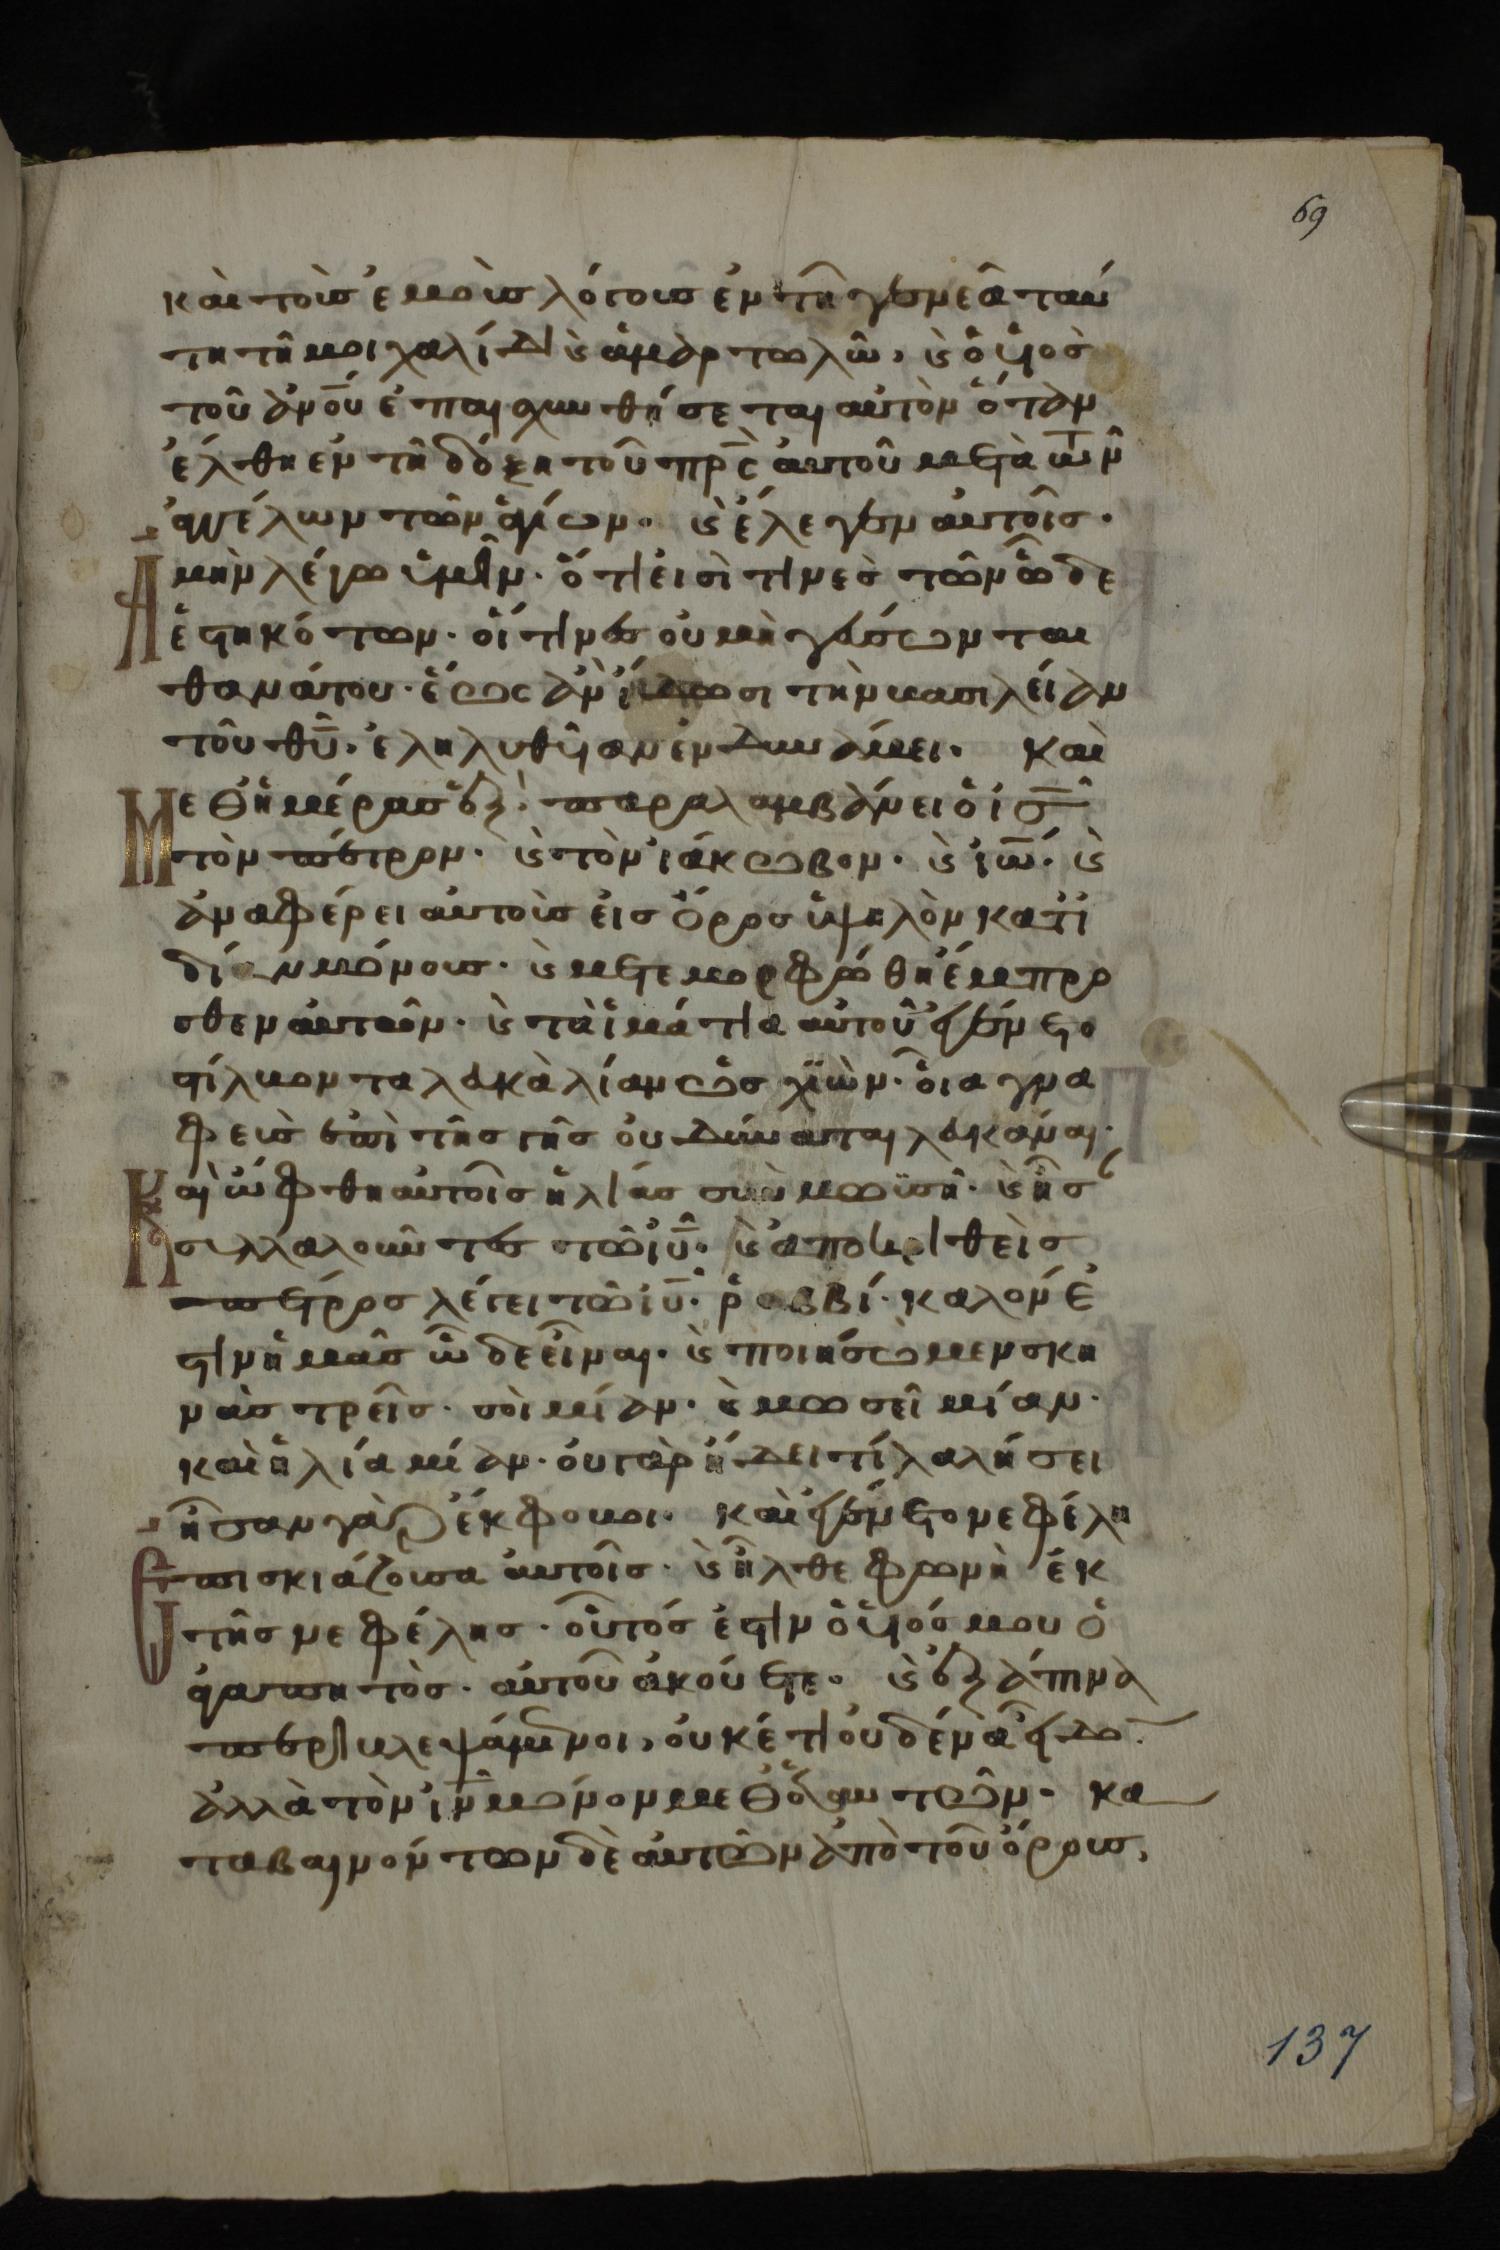 69
καὶ τοὺς ἐμοὺς λόγους ἐν τῆ γενεᾶ ταύ
τη τῆ μοιχαλίδι κ ἁμαρτωλῶ, κ ὁ υἱὸς
τοῦ ἀνου ἐπαισχυνθήσεται αὐτὸν ὅταν
ἔλθη ἐν τῆ δόξη τοῦ πρς αὐτοῦ μετὰ τῶν
ἀγγέλων τῶν ἁγίων. κ ἔλεγεν αὐτοῖς.
Ἀμὴν λέγω ὑμῖν. ὅτι εἰσὶ τινὲς τῶν ὧδε
ἑστηκότων. οἵτινες οὐ μὴ γεύσωνται
θανάτου. ἕως ἂν ἴδωσι τὴν βασιλείαν
τοῦ θυ. ἐληλυθῦιαν ἐν δυνάμει. Καὶ
Μεθ ἡμέρας ἓξ. παραλαμβάνει ὁ ις
τὸν πέτρον. κ τὸν ἰάκωβον. κ ἰω. κ
ἀναφέρει αὐτοὺς εἰς ὄρος ὑψηλὸν κατι
δίαν μόνους. κ μετεμορφώθη ἔμπρο
σθεν αὐτῶν. κ τὰ ἱμάτια αὐτοῦ ἐγένετο
στίλβοντα λευκὰ λίαν ὡς χϊὼν. οἷα γνα
φεὺς ἐπὶ τῆς γῆς οὐ δύναται λευκάναι.
Καὶ ὤφθη αὐτοῖς ἡλίας σὺν μωϋσῆ. κ ἦσ
συλλαλοῦντες τῶ ιυ. κ ἀποκριθεὶς
πέτρος λέγει τῶ ιυ. ῥαββί. καλόν ἐ
στιν ἡμᾶς ὧδε εἶναι. κ ποιήσωμεν σκη
νὰς τρεῖς. σοὶ μίαν. κ μωσεῖ μίαν.
καὶ ἡλία μίαν. οὐ γὰρ ἤδει τί λαλήσει
ἦσαν γὰρ ἔκφοβοι. καὶ ἐγένετο νεφέλη
ἐπισκιάζουσα αὐτοῖς. κ ἦλθε φωνὴ ἐκ
τῆς νεφέλης. οὗτός ἐστιν ὁ υἱός μου ὁ
ἀγαπητὸς. αὐτοῦ ἀκούετε. κ ἐξάπινα
περιβλεψάμενοι, οὐκέτι οὐδένα εἶδον.
ἀλλὰ τὸν ιν μόνον μεθ ἑαυτῶν. κα
ταβαινόντων δὲ αὐτῶν ἀπὸ τοῦ ὄρους,
137